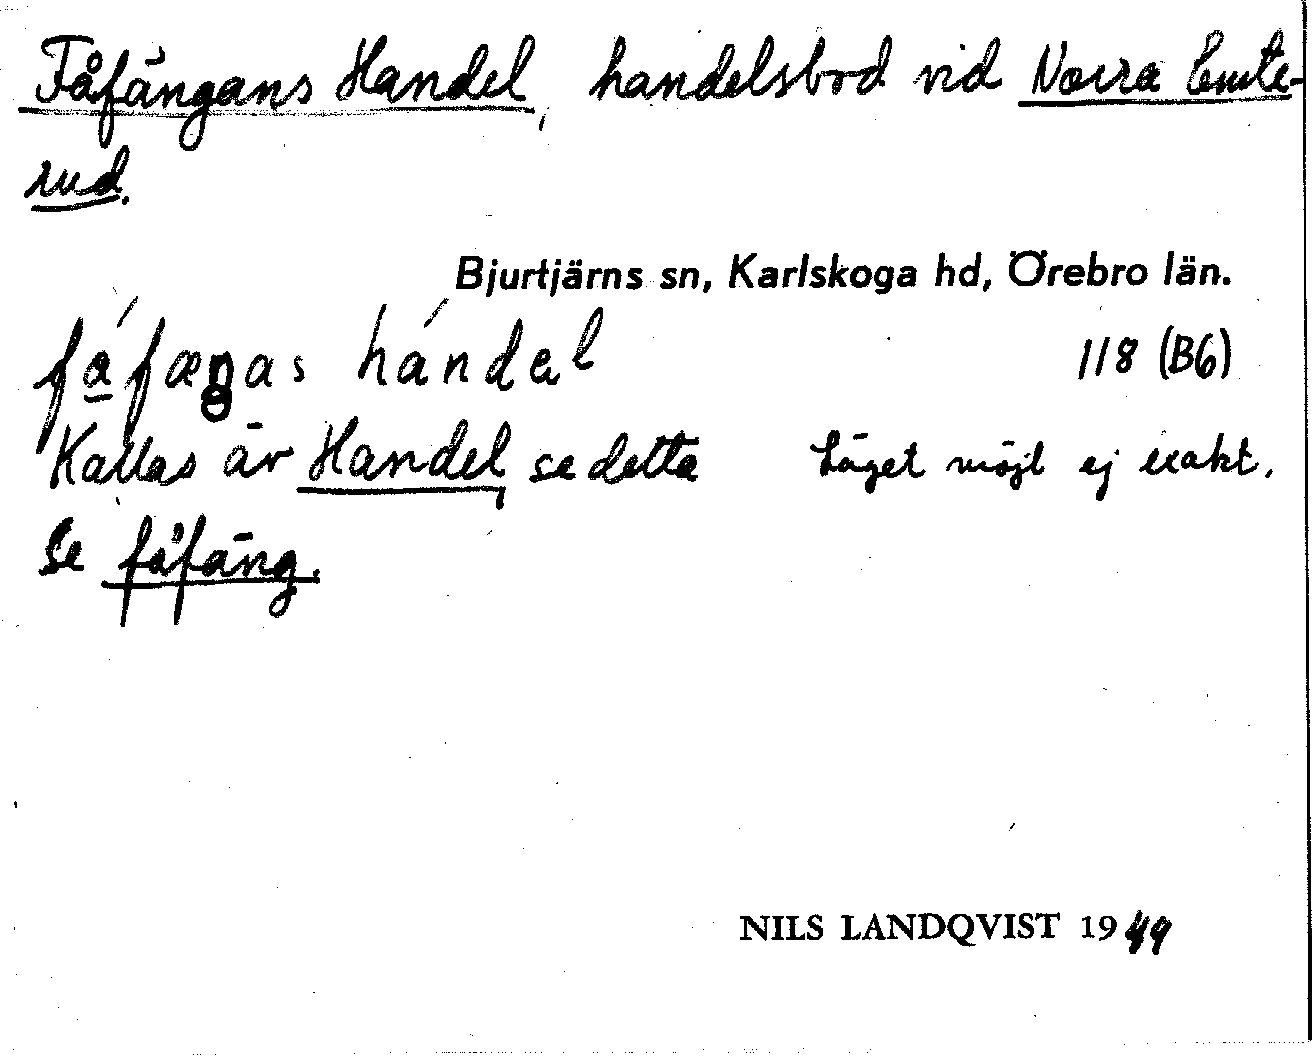 Fåfängans Handel, handelsbod vid Norra Emte-
rud.
Bjurtjärns sn, Karlskoga hd, Örebro län.
fáfæŋas hándel 118 (B6)
Kallas äv Handel, se detta Läget möjl ej exakt.
Se fåfäng.
NILS LANDQVIST 1949